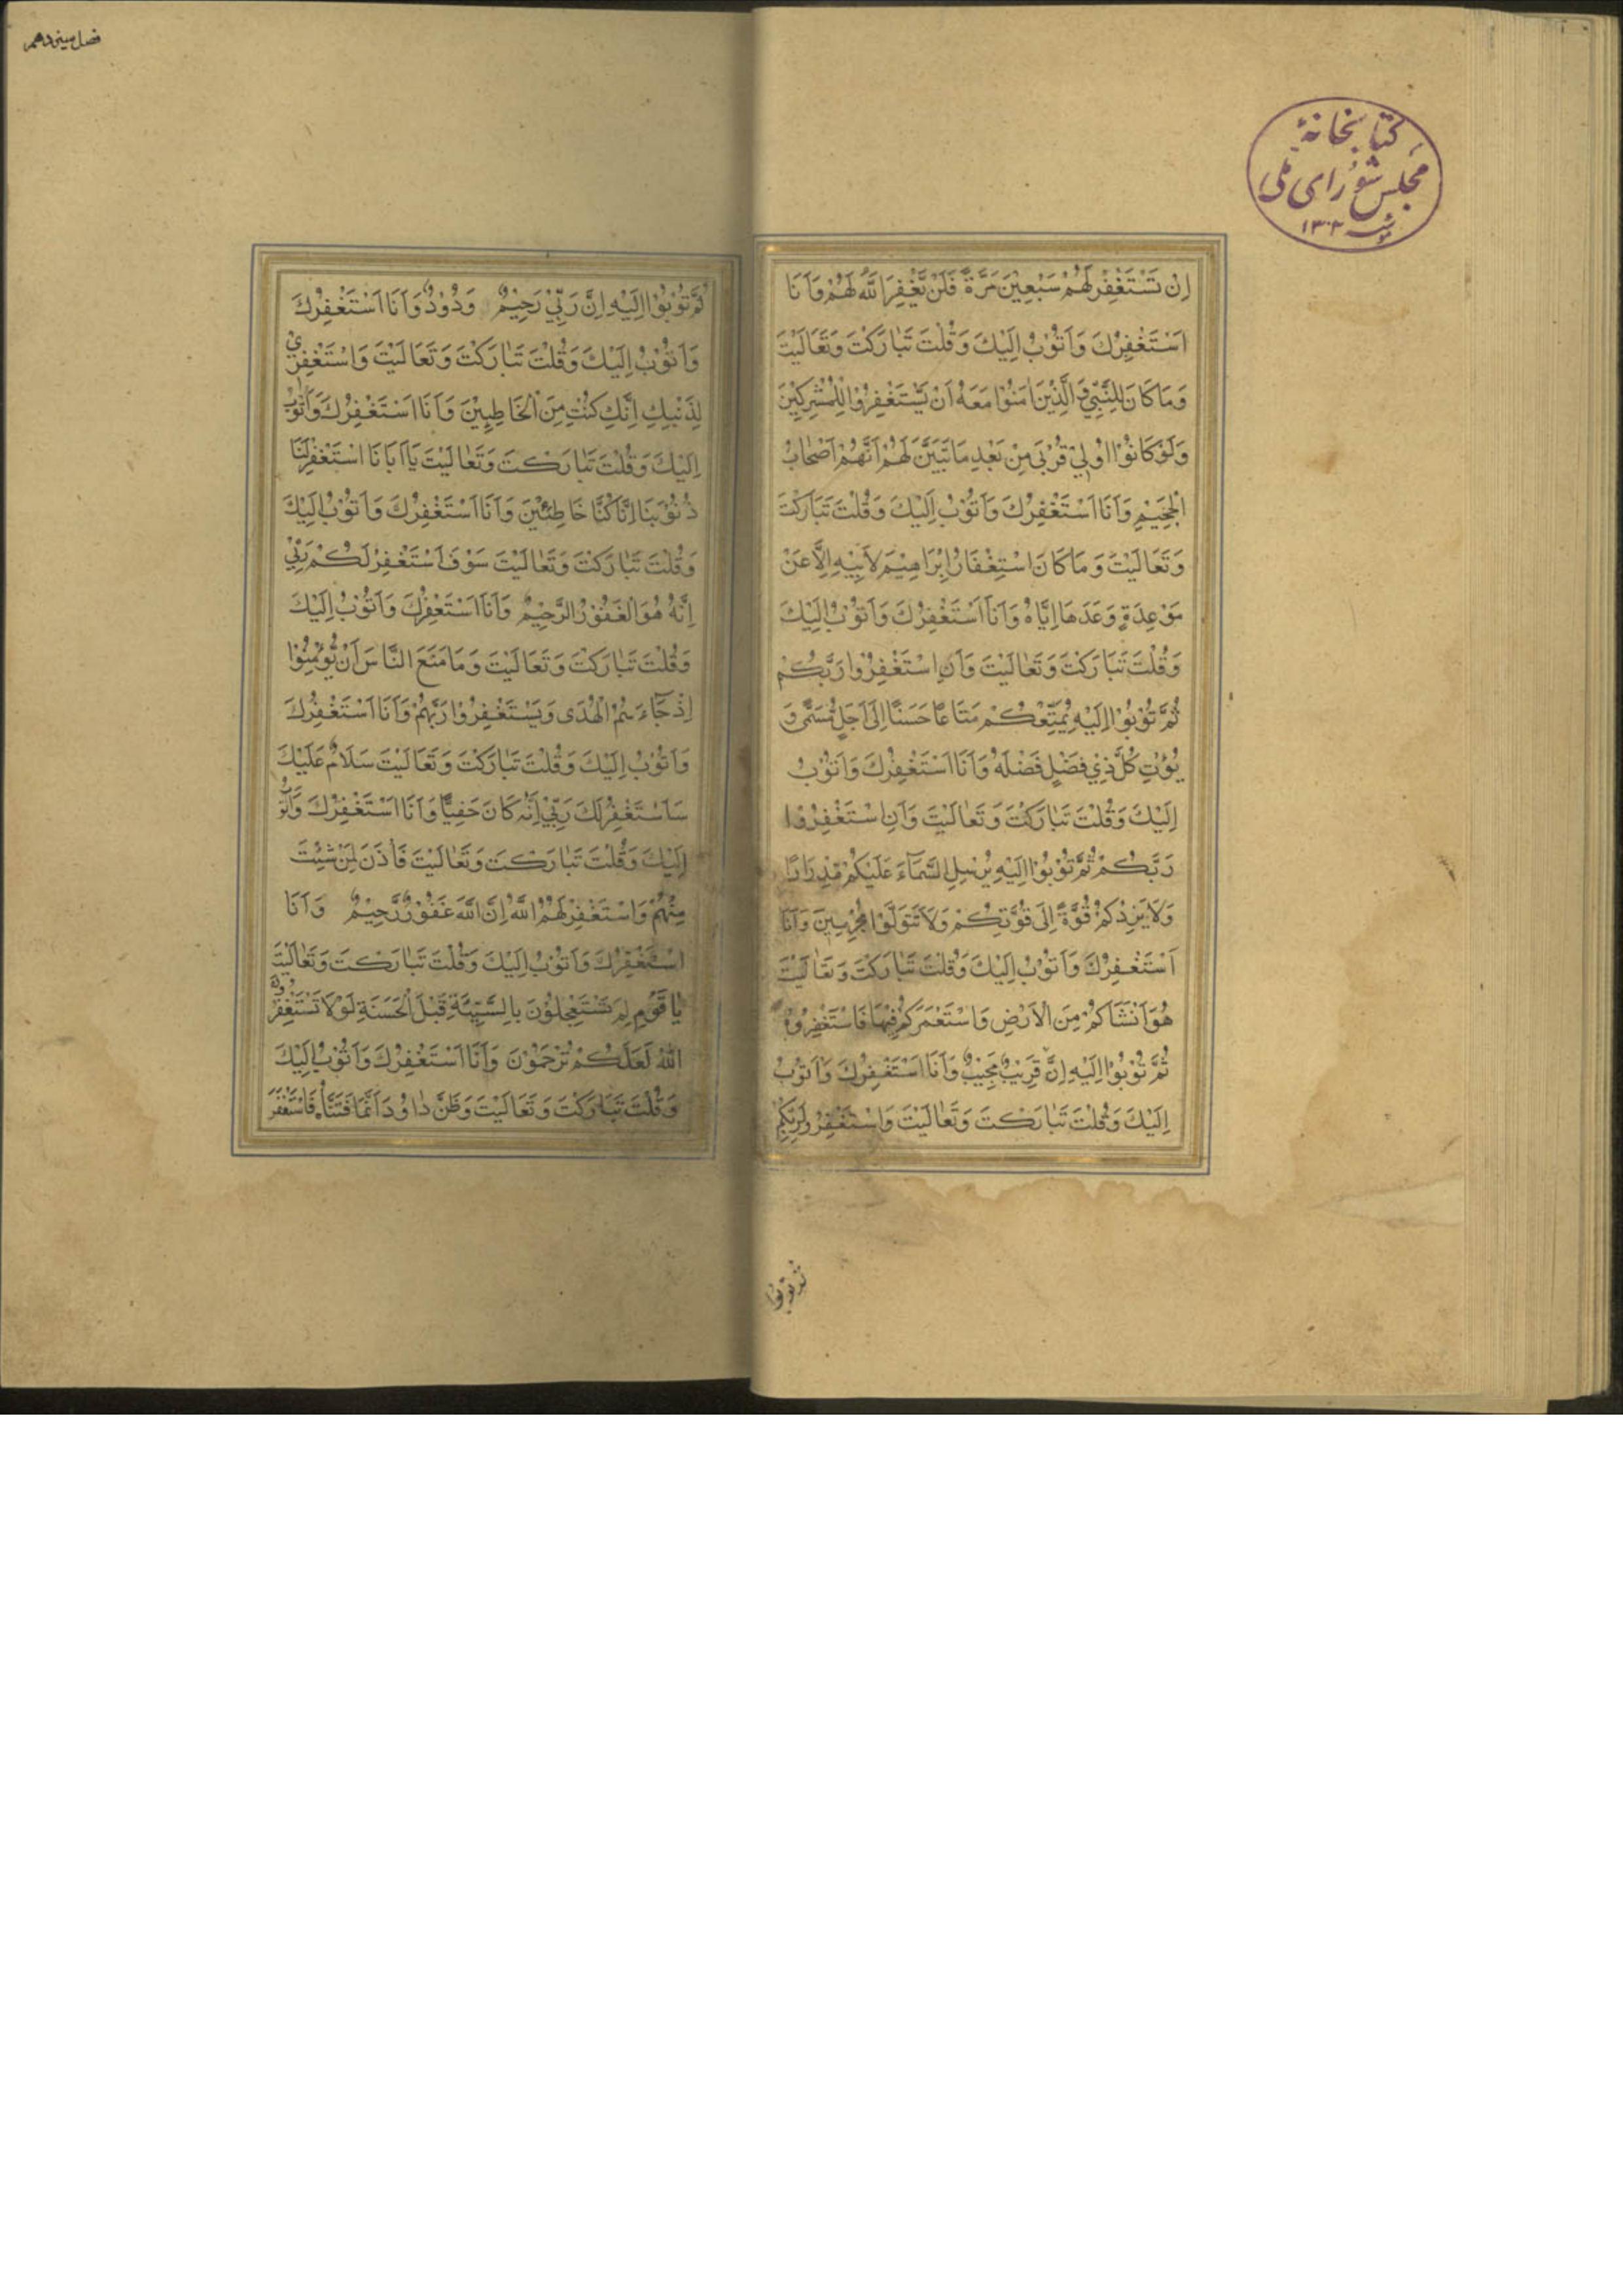 کتابخانهٔ
مجلس شورای ملی
۱۳۰۲
اِنْ تَسْتَغْفِرْ لَهُمْ سَبْعِيْنَ مَرَّةً فَلَنْ يَّغْفِرَ اللّٰهُ لَهُمْ وَاَنَا
اَسْتَغْفِرُكَ وَاَتُوْبُ اِلَيْكَ وَقُلْتَ تَبٰارَكْتَ وَتَعٰالَيْتَ
وَمَا كَانَ لِلنَّبِيِّ وَالَّذِيْنَ اٰمَنُوْا مَعَهُ اَنْ يَّسْتَغْفِرُوْا لِلْمُشْرِكِيْنَ
وَلَوْ كَانُوْا اُولِيْ قُرْبٰى مِنْ بَعْدِ مَا تَبَيَّنَ لَهُمْ اَنَّهُمْ اَصْحٰابُ
الْجَحِيْمِ وَاَنَا اَسْتَغْفِرُكَ وَاَتُوْبُ اِلَيْكَ وَقُلْتَ تَبَارَكْتَ
وَتَعَالَيْتَ وَمَا كَانَ اسْتِغْفَارُ اِبْرَاهِيْمَ لِاَبِيْهِ اِلَّا عَنْ
مَوْعِدَةٍ وَعَدَهَا اِيَّاهُ وَاَنَا اَسْتَغْفِرُكَ وَاَتُوْبُ اِلَيْكَ
وَقُلْتَ تَبَارَكْتَ وَتَعٰالَيْتَ وَاَنِ اسْتَغْفِرُوْا رَبَّكُمْ
ثُمَّ تُوْبُوْا اِلَيْهِ يُمَتِّعْكُمْ مَتَاعًا حَسَنًا اِلٰى اَجَلٍ مُسَمًّى وَ
يُؤْتِ كُلَّ ذِيْ فَضْلٍ فَضْلَهُ وَاَنَا اَسْتَغْفِرُكَ وَاَتُوْبُ
اِلَيْكَ وَقُلْتَ تَبٰارَكْتَ وَتَعٰالَيْتَ وَاَنِ اسْتَغْفِرُوْا
رَبَّكُمْ ثُمَّ تُوْبُوْا اِلَيْهِ يُرْسِلِ السَّمَآءَ عَلَيْكُمْ مِّدْرَارًا
وَلَا يَزِدْكُمْ قُوَّةً اِلٰى قُوَّتِكُمْ وَلَا تَتَوَلَّوْا مُجْرِمِيْنَ وَاَنَا
اَسْتَغْفِرُكَ وَاَتُوْبُ اِلَيْكَ وَقُلْتَ تَبٰارَكْتَ وَتَعٰالَيْتَ
هُوَ اَنْشَاَكُمْ مِنَ الْاَرْضِ وَاسْتَعْمَرَكُمْ فِيْهَا فَاسْتَغْفِرُوْهُ
ثُمَّ تُوْبُوْا اِلَيْهِ اِنَّ قَرِيْبٌ مُجِيْبٌ وَاَنَا اَسْتَغْفِرُكَ وَاَتُوْبُ
اِلَيْكَ وَقُلْتَ تَبٰارَكْتَ وَتَعٰالَيْتَ وَاسْتَغْفِرُوْا رَبَّكُمْ
ثم توبوا
فصل سیزدهم
ثُمَّ تُوْبُوْا اِلَيْهِ اِنَّ رَبِّيْ رَحِيْمٌ وَدُوْدٌ وَاَنَا اَسْتَغْفِرُكَ
وَاَتُوْبُ اِلَيْكَ وَقُلْتَ تَبٰارَكْتَ وَتَعَالَيْتَ وَاسْتَغْفِرِيْ
لِذَنْبِكِ اِنَّكِ كُنْتِ مِنَ الْخَاطِئِيْنَ وَاَنَا اَسْتَغْفِرُكَ وَاَتُوْبُ
اِلَيْكَ وَقُلْتَ تَبٰارَكْتَ وَتَعٰالَيْتَ يَا اَبَانَا اسْتَغْفِرْ لَنَا
ذُنُوْبَنَا اِنَّا كُنَّا خَاطِئِيْنَ وَاَنَا اَسْتَغْفِرُكَ وَاَتُوْبُ اِلَيْكَ
وَقُلْتَ تَبٰارَكْتَ وَتَعٰالَيْتَ سَوْفَ اَسْتَغْفِرُ لَكُمْ رَبِّيْ
اِنَّهُ هُوَ الْغَفُوْرُ الرَّحِيْمُ وَاَنَا اَسْتَغْفِرُكَ وَاَتُوْبُ اِلَيْكَ
وَقُلْتَ تَبٰارَكْتَ وَتَعَالَيْتَ وَمَا مَنَعَ النَّاسَ اَنْ يُّؤْمِنُوْا
اِذْ جَآءَهُمُ الْهُدٰى وَيَسْتَغْفِرُوْا رَبَّهُمْ وَاَنَا اَسْتَغْفِرُكَ
وَاَتُوْبُ اِلَيْكَ وَقُلْتَ تَبٰارَكْتَ وَتَعَالَيْتَ سَلَامٌ عَلَيْكَ
سَاَسْتَغْفِرُ لَكَ رَبِّيْ اِنَّهُ كَانَ حَفِيًّا وَاَنَا اَسْتَغْفِرُكَ وَاَتُوْبُ
اِلَيْكَ وَقُلْتَ تَبٰارَكْتَ وَتَعٰالَيْتَ فَأْذَنْ لِمَنْ شِئْتَ
مِنْهُمْ وَاسْتَغْفِرْ لَهُمُ اللّٰهَ اِنَّ اللّٰهَ غَفُوْرٌ رَّحِيْمٌ وَاَنَا
اَسْتَغْفِرُكَ وَاَتُوْبُ اِلَيْكَ وَقُلْتَ تَبٰارَكْتَ وَتَعٰالَيْتَ
يٰا قَوْمِ لِمَ تَسْتَعْجِلُوْنَ بِالسَّيِّئَةِ قَبْلَ الْحَسَنَةِ لَوْلَا تَسْتَغْفِرُوْنَ
اللّٰهَ لَعَلَّكُمْ تُرْحَمُوْنَ وَاَنَا اَسْتَغْفِرُكَ وَاَتُوْبُ اِلَيْكَ
وَقُلْتَ تَبَارَكْتَ وَتَعَالَيْتَ وَظَنَّ دٰاوُدُ اَنَّمَا فَتَنَّاهُ فَاسْتَغْفَرَ